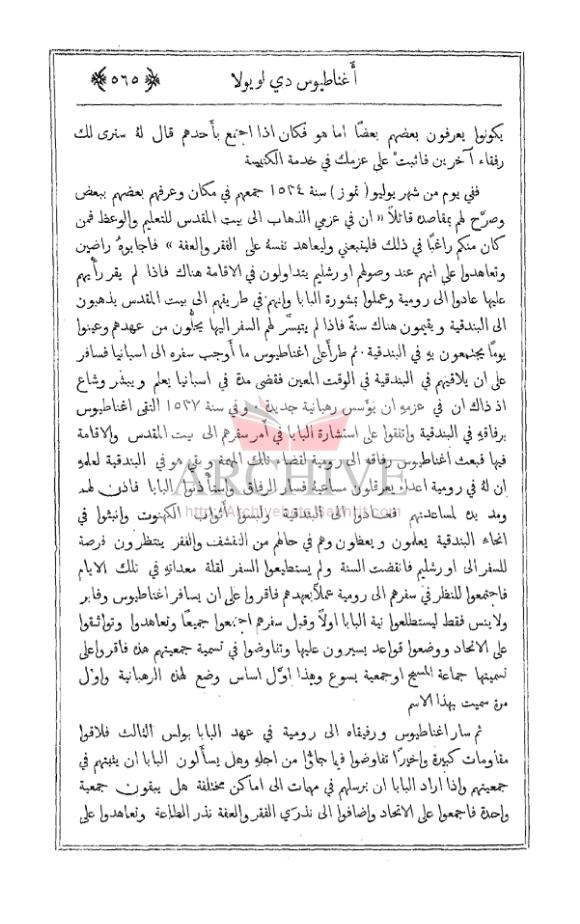 أغناطيوس دي لويولا ﴿ ٥٦٥ ﴾
يكونوا يعرفون بعضهم بعضًا اما هو فكان اذا اجتمع بأحدهم قال لهُ سترى لك
رفقاء آخرين فاثبت على عزمك في خدمة الكنيسة
ففي يوم من شهر يوليو ( تموز ) سنة ١٥٣٤ جمعهم في مكان وعرفهم بعضهم ببعض
وصرَّح لهم بمقاصده قائلاً « ان في عزمي الذهاب الى بيت المقدس للتعليم والوعظ فمن
كان منكم راغبًا في ذلك فليتبعني وليعاهد نفسهُ على الفقر والعفة » فاجابوهُ راضين
وتعاهدوا على انهم عند وصولهم اورشليم يتداولون في الاقامة هناك فاذا لم يقر رأيهم
عليها عادوا الى رومية وعملوا بمشورة البابا وانهم في طريقهم الى بيت المقدس يذهبون
الى البندقية ويقيمون هناك سنةً فاذا لم يتيسَّر لهم السفر اليها يحلُّون من عهدهم وعينوا
يومًا يجتمعون بهِ في البندقية . ثم طرأ على اغناطيوس ما أوجب سفره الى اسبانيا فسافر
على ان يلاقيهم في البندقية في الوقت المعين فقضى مدة في اسبانيا يعلم ويبشر وشاع
اذ ذاك ان في عزمهِ ان يؤسس رهبانية جديدة . وفي سنة ١٥٣٧ التقى اغناطيوس
برفاقهِ في البندقية واتفقوا على استشارة البابا في أمر سفرهم الى بيت المقدس والاقامة
فيها فبعث أغناطيوس رفاقه الى رومية لقضاء تلك المهمة وبقي هو في البندقية لعلمهِ
ان لهُ في رومية اعداء يعرقلون مساعيهُ فسار الرفاق واستأذنوا البابا فاذن لهم
ومد يده لمساعدتهم فعادوا الى البندقية ولبسوا أثواب الكهنوت وانبثوا في
انحاء البندقية يعلمون ويعظون وهم في حالهم من التقشف والفقر ينتظرون فرصة
للسفر الى اورشليم فانقضت السنة ولم يستطيعوا السفر لقلة معداتهِ في تلك الايام
فاجتمعوا للنظر في سفرهم الى رومية عملاً بعهدهم فاقروا على ان يسافر اغناطيوس وفابر
ولاينس فقط ليستطلعوا نية البابا اولاً وقبل سفرهم اجتمعوا جميعًا وتعاهدوا وتواثقوا
على الاتحاد ووضعوا قواعد يسيرون عليها وتفاوضوا في تسمية جمعيتهم هذه فاقروا على
تسميتها جماعة المسيح او جمعية يسوع وهذا اوَّل اساس وضع لهذه الرهبانية واول
مرة سميت بهذا الاسم
ثم سار اغناطيوس ورفيقاه الى رومية في عهد البابا بولس الثالث فلاقوا
مقاومات كبيرة واخيرًا تفاوضوا فيما جاؤا من اجلهِ وهل يسألون البابا ان يثبتهم في
جمعيتهم واذا اراد البابا ان يرسلهم في مهمات الى اماكن مختلفة هل يبقون جمعية
واحدة فاجمعوا على الاتحاد واضافوا الى نذري الفقر والعفة نذر الطاعة وتعاهدوا على
ARCHIVE